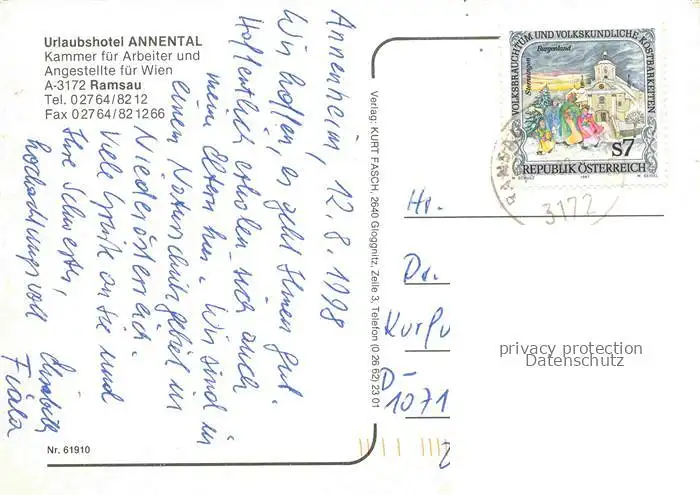 Urlaubshotel ANNENTAL
Kammer für Arbeiter und
Angestellte für Wien
A-3172 Ramsau
Tel. 02764/8212
Fax 02764/821266
Annenheim, 12.8.1998
Wir hoffen, es geht Ihnen gut.
Hoffentlich erholen sich auch
meine Eltern hier. Wir sind in
einem Naturschutzgebiet in
Niederösterreich.
Viele Grüße an Sie und
Ihre Schwester,
hochachtungsvoll
Elisabeth
Fiala
Nr. 61910
Verlag: KURT FASCH, 2640 Gloggnitz, Zeile 3, Telefon (0 26 62) 23 01
VOLKSBRAUCHTUM UND VOLKSKUNDLICHE KOSTBARKEITEN
Burgenland
Sternsingen
S7
REPUBLIK ÖSTERREICH
1997
RAMSAU
3172
Hr.
Dr.
Kurfu
D-
1071
privacy protection
Datenschutz